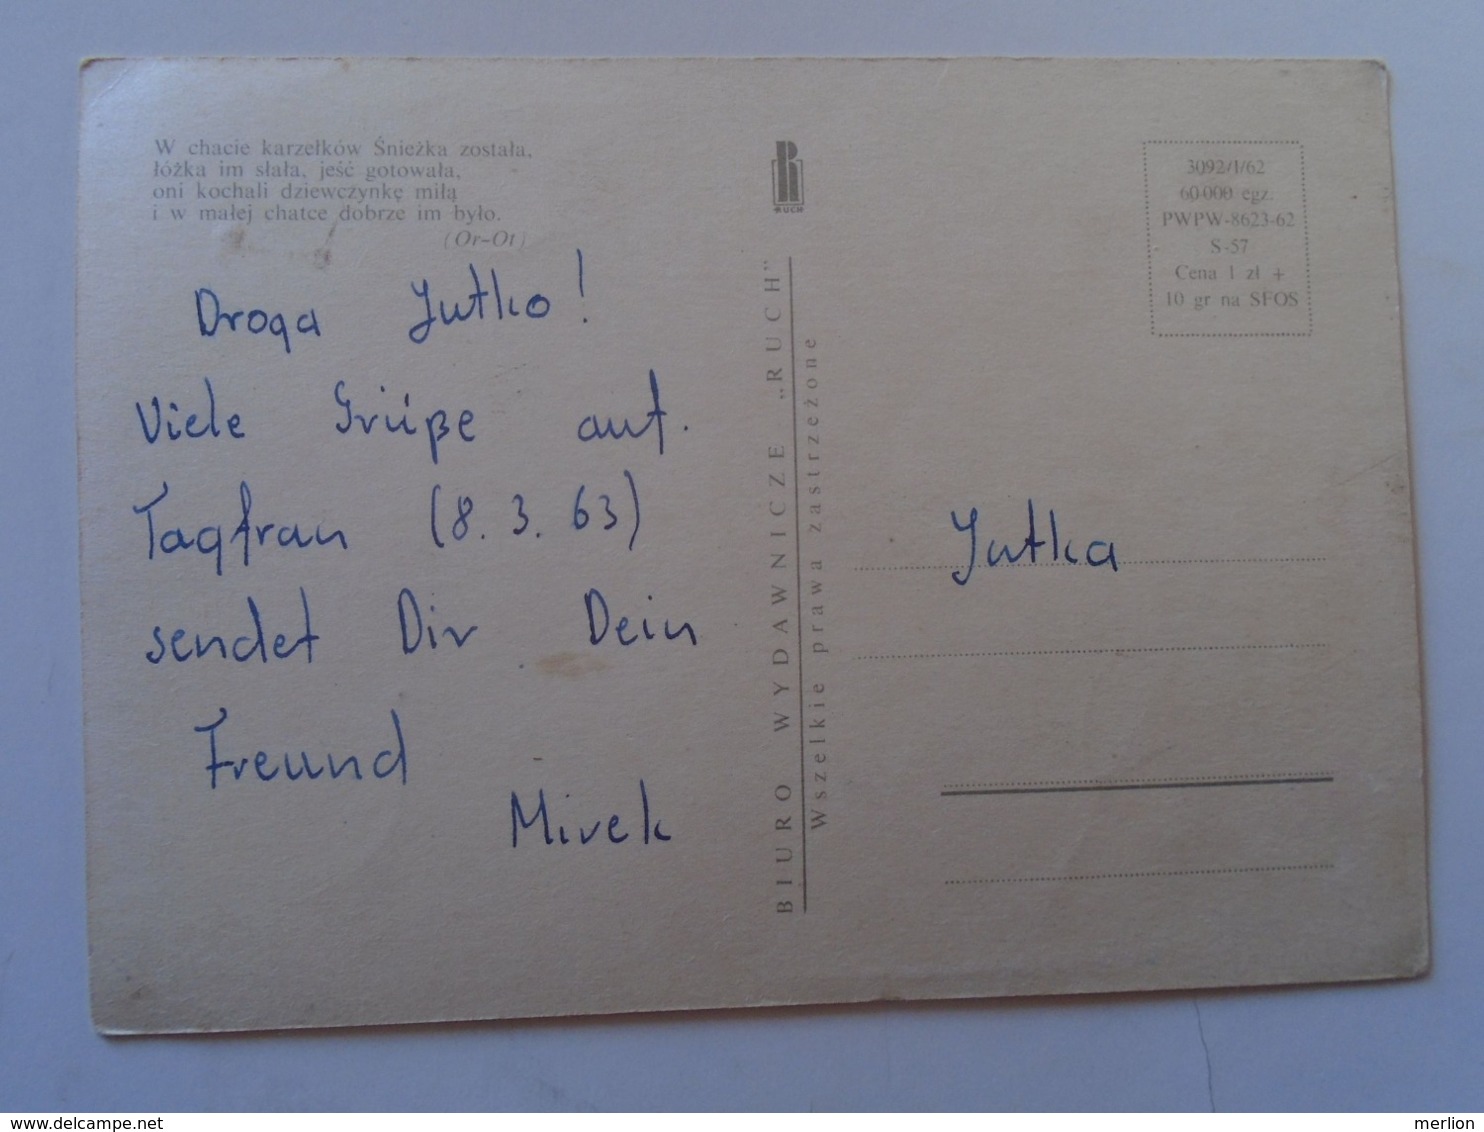 W chacie karzełków Śnieżka została,
łóżka im słała, jeść gotowała,
oni kochali dziewczynkę miłą
i w małej chatce dobrze im było.
(Or-Ot)
Droga Jutko!
Viele Grüße auf.
Tagfrau (8. 3. 63)
sendet Dir Dein
Freund
Mirek
R
RUCH
BIURO WYDAWNICZE „RUCH"
Wszelkie prawa zastrzeżone
3092/I/62
60 000 egz.
PWPW-8623-62
S-57
Cena 1 zł +
10 gr na SFOS
Jutka
www.delcampe.net
merlion